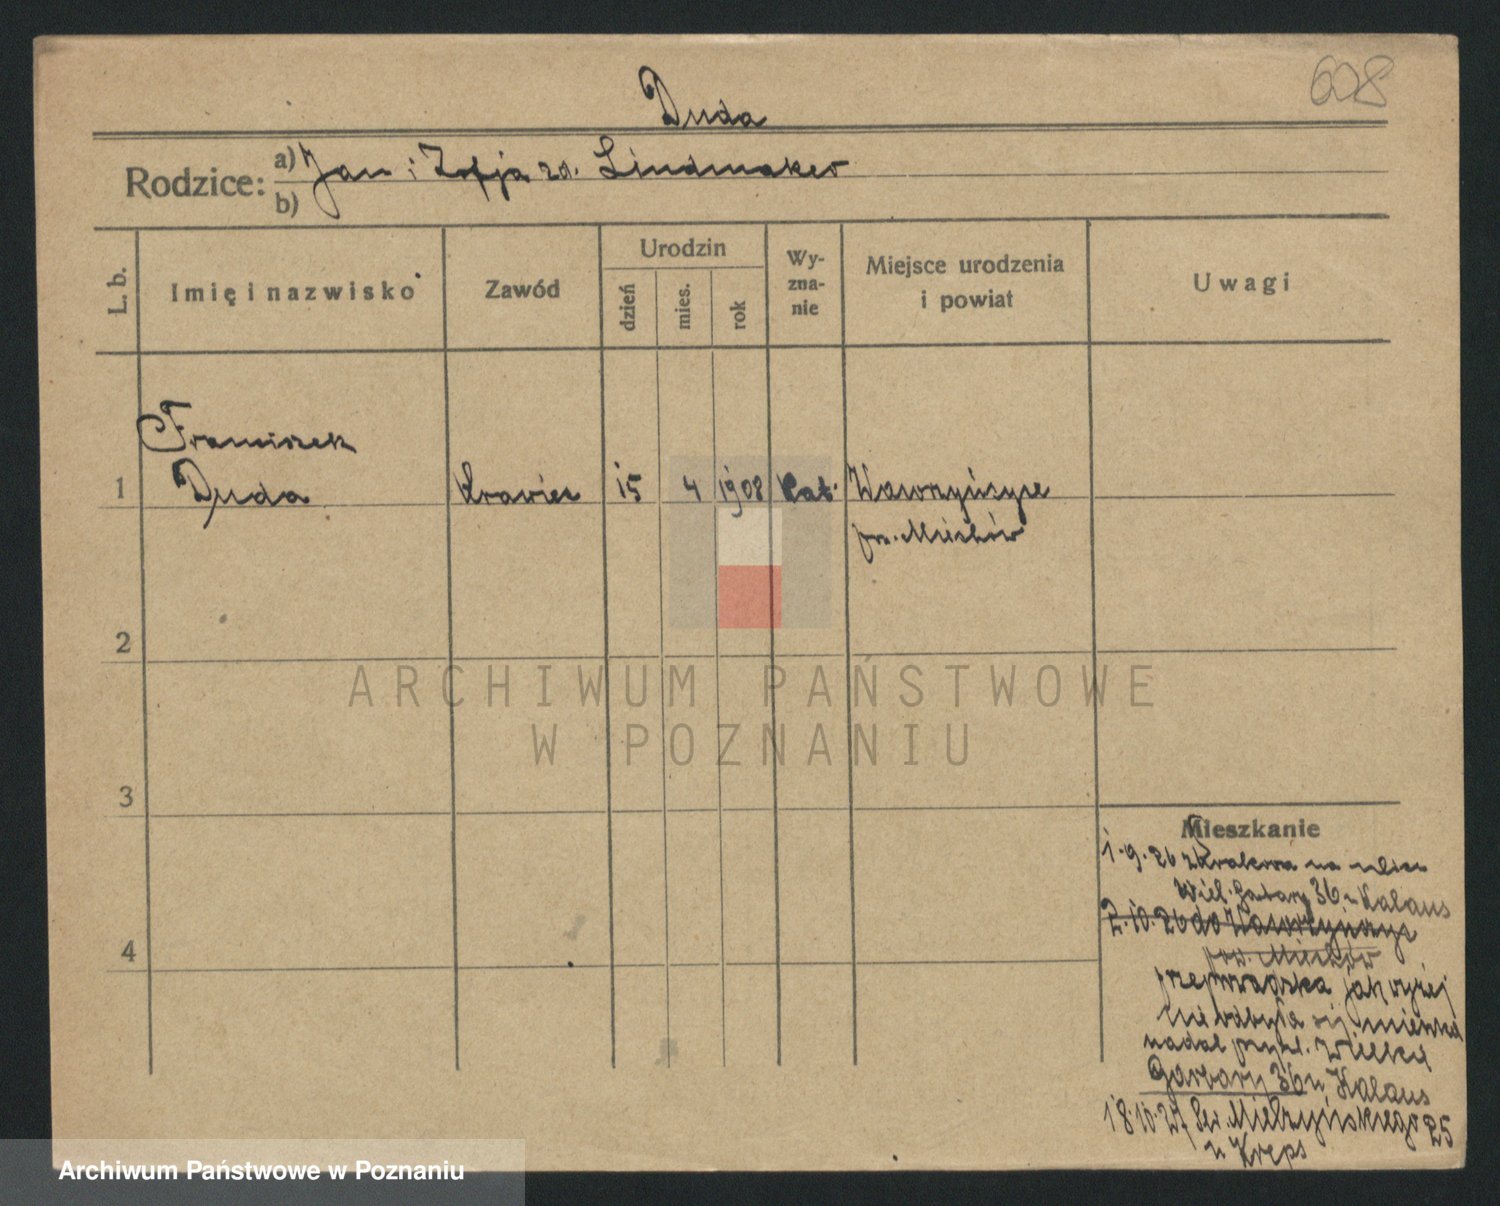 608
Duda
Rodzice: a) Jan i Zofja zd. Lindmaker
b)
L. b.
Imię i nazwisko
Zawód
Urodzin
dzień
mies.
rok
Wy-
zna-
nie
Miejsce urodzenia
i powiat
Uwagi
Franciszek
1 Duda Krawiec 15 4 1908 kat. Wawrzyńczyce
pow. Miechów
2
3
4
Mieszkanie
1.9.26 z Krakowa na ulicę
Wiel. Garbary 36 u Kalaus
2.10.26 do Wawrzyńczyc
pow. Miechów
przeprowadzka jak wyżej
nie odbyła się mieszka
nadal przy ul. Wielkiej
Garbary 36 u Kalaus
18.10.27 Sew. Mielżyńskiego 25
u Kreps
ARCHIWUM PAŃSTWOWE
W POZNANIU
Archiwum Państwowe w Poznaniu